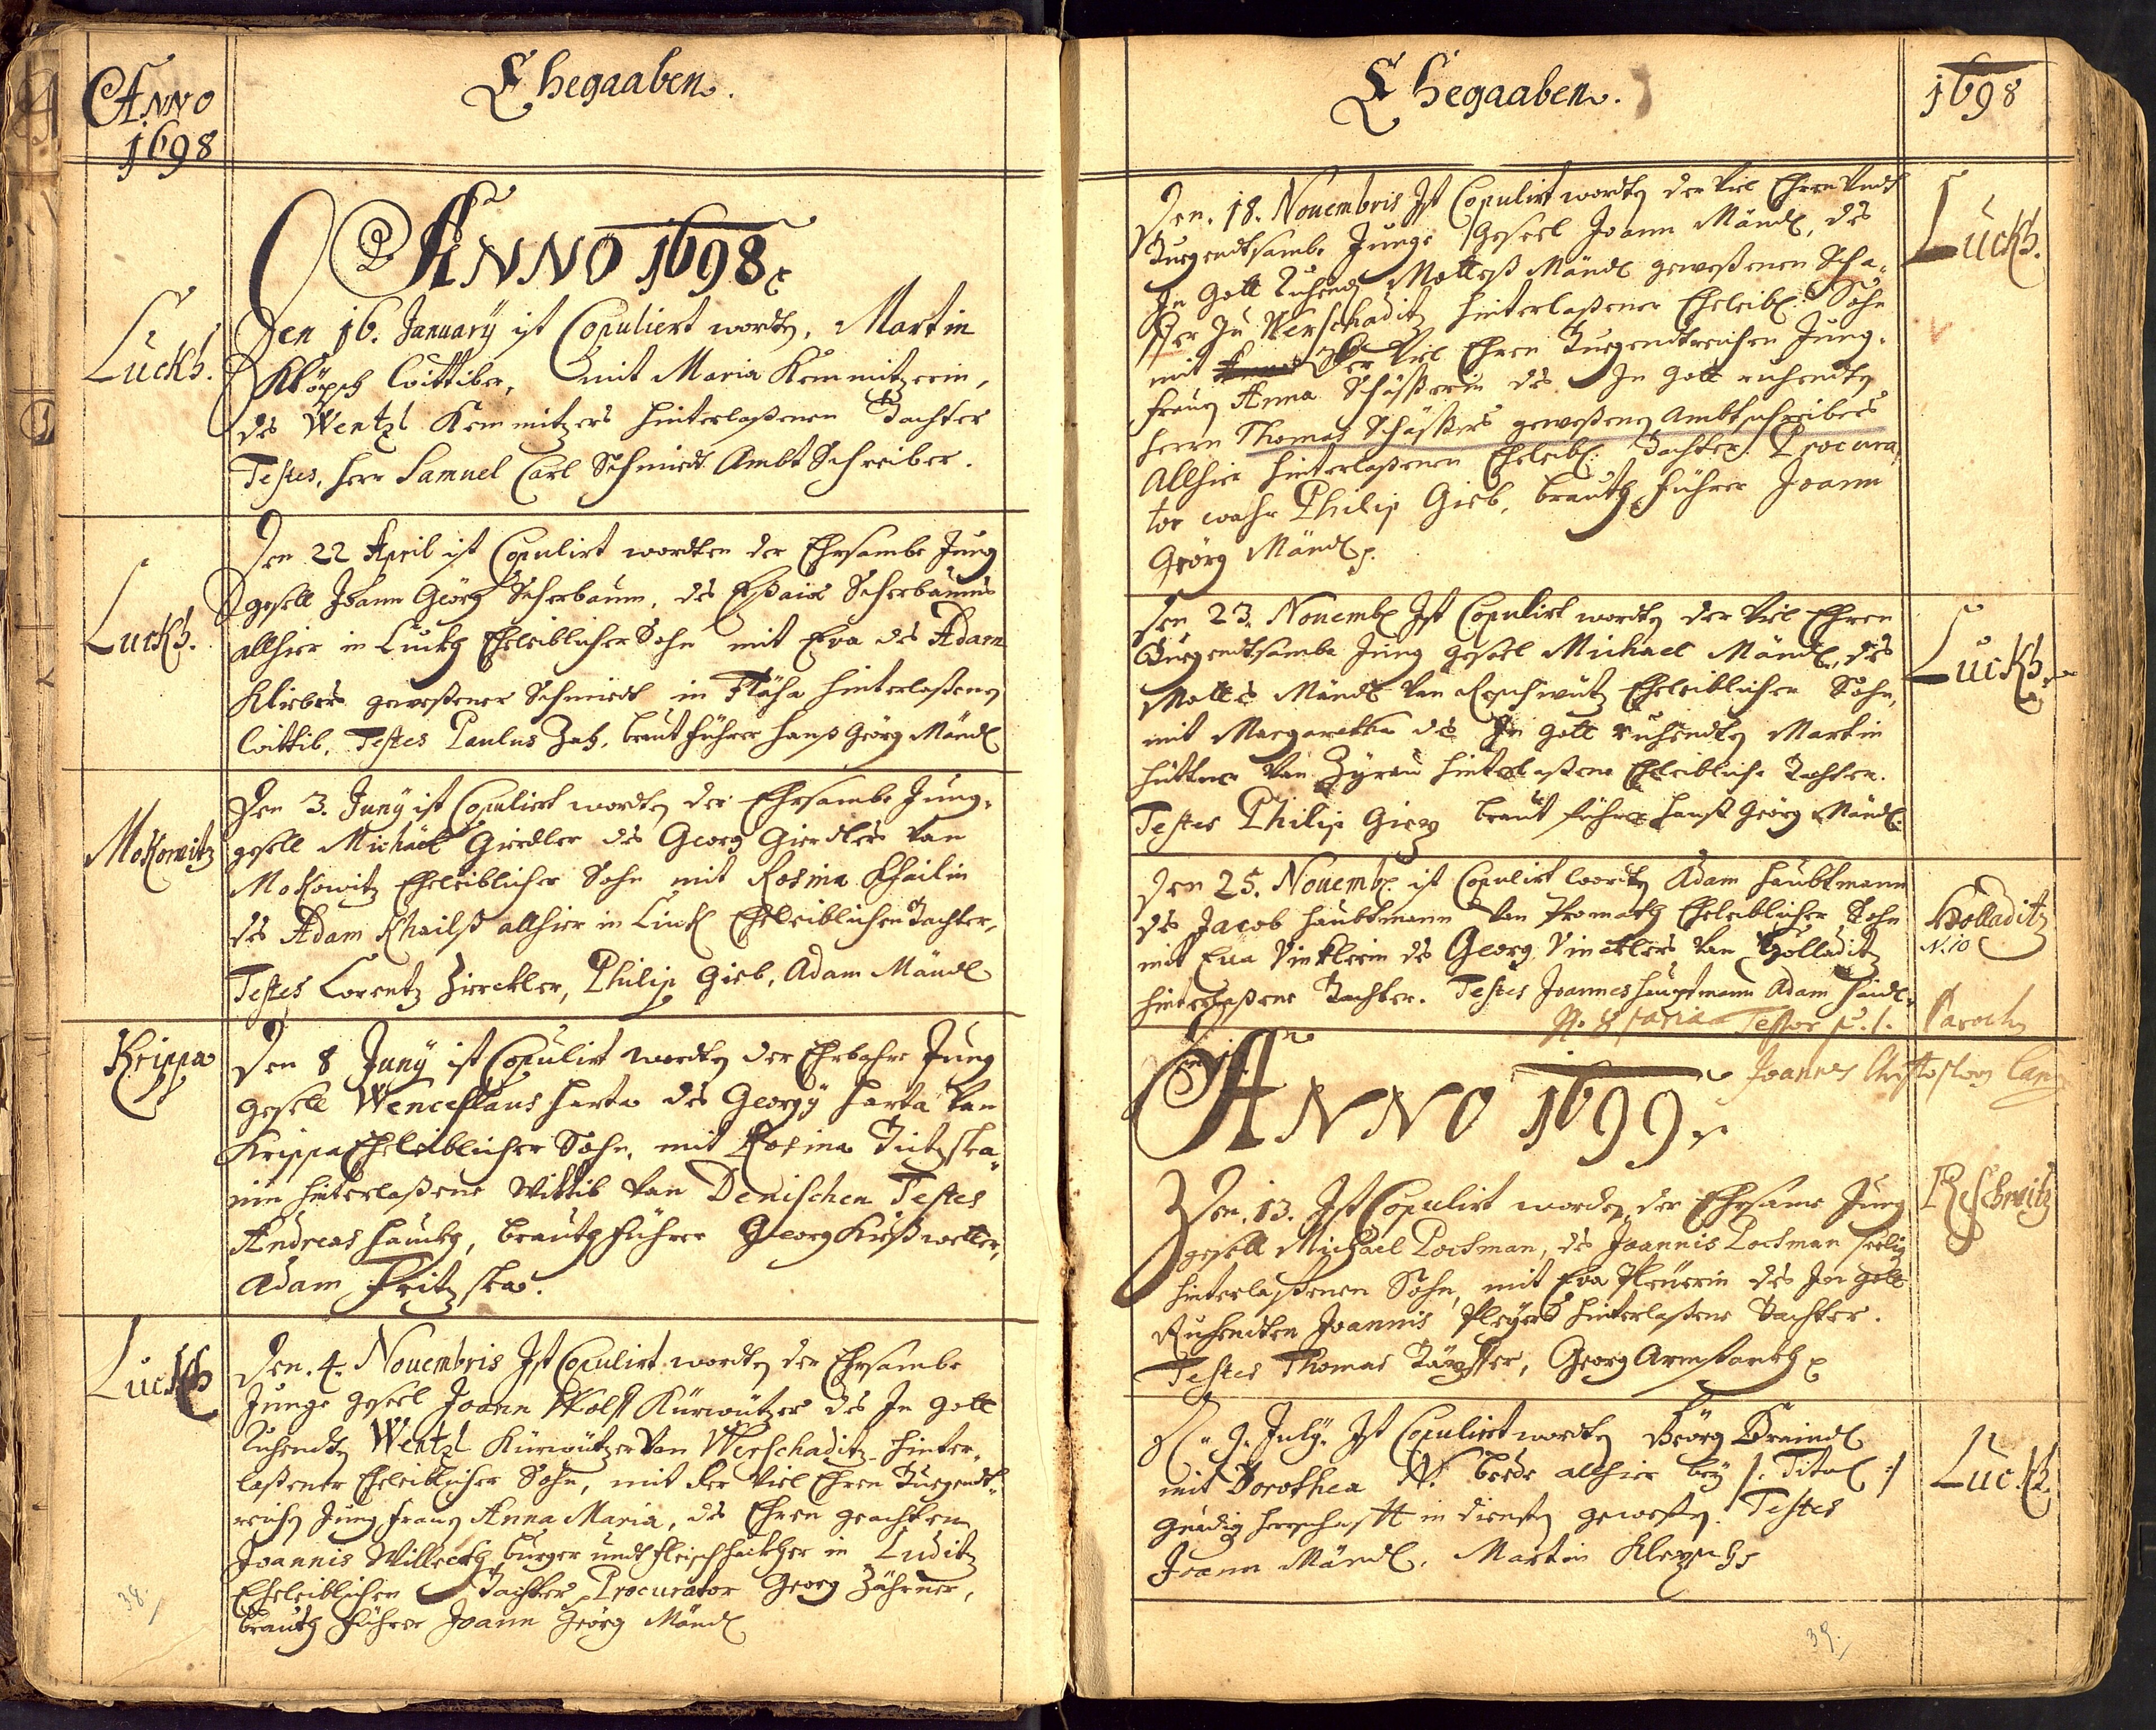 Anno
1698
Ehegaaben.
ANNO 1698
Luckh.
Den 16. January ist Copuliert wordten, Martin
Klöpsch Wittiber, mit Maria Kemmitzerin,
des Wentzl Kemmitzers hinterlaßenen Tochter
Testes, Herr Samuel Carl Schmiedt Ambt Schreiber.
Luckh.
Den 22 April ist Copulirt wordten der Ehrsambe Jung
gesell Johann Georg Scherbaum, des Scherbaums
allhier in Luckh Eheleiblicher Sohn mit Eva des Adam
Kliebers geweßener Schmiedt in Fläha hinterlaßene
Wittib, Testes Paulus Zah, braut führer Hanß Georg Mändl
Mokowitz
Den 3. Juny ist Copuliert wordten der Ehrsambe Jung-
gesell Michäel Gierdler des Georg Gierdlers Van
Mokowitz Eheleiblicher Sohn mit Rosina Khailin
des Adam Khailß allhier in Luck Eheleiblichen Tochter,
Testes Lorentz Zierckler, Philip Gieb, Adam Mändl
Krippa
Den 8 Juny ist Copulirt wordten der Ehrbahre Jung
gesell Wenceslaus Harta des Georgy Harta Van
Krippa Eheleiblicher Sohn, mit Rosina
nin hinterlaßene Wittib Van Denischen Testes
Andreas Hauckh, brauth führer Georg
Adam Fritzska.
Luckh
Den. 4. Nouembris Ist Copulirt wordten der Ehrsambe
Junge gesel Joann Wolff Kürwützer des In Gott
Ruhendten Wentzl Kürwützer Van Werschaditz hinter-
laßener Eheleiblicher Sohn, mit der Viel Ehren Tugendt-
reichen Jungfrauen Anna Maria, des Ehren geachten
Joannis Willeckh burger undt fleischhackher in Luditz
Eheleiblichen Tochter, Procurator Georg Zährer,
brauth führer Joann Georg Mändl
38.
Ehegaaben.
1698
Luckh.
Den. 18. Nouembris Ist Copulirt wordten der Viel Ehren Vndt
Tugendtsambe Junge Gesell Joann Mändl, des
In Gott Ruhendt Matteß Mändl geweßenen Scha-
ffer Zu Werschaditz hinterlaßener Eheleibl: Sohn
mit Anna der Viel Ehren Tugendtreichen Jung-
frauen Anna Schäfferin des In Gott ruhendten
Herrn Thomas Schäffers geweßenen Ambtschreibers
Allhier hinterlaßenen Eheleibl: Tochter. Procura-
tor wahr Philip Gieb, brauth führer Joann
Georg Mändl.
Luckh.
Den 23. Nouemb: Ist Copulirt wordten der Viel Ehren
Tugendtsambe Jung gesel Michael Mändl, des
Mattes Mändl Van Reschwitz Eheleiblicher Sohn,
mit Margaretha des In Gott ruhendten Martin
Hüttner Van Zÿrau hinterlaßene Eheleibliche Tochter.
Testes Philip Gieb braut führer Hanß Georg Mändl.
Kolladitz
N. 10
Den 25. Nouemb: ist Copulirt wordten Adam Haubtmann
des Jacob Haubtmann Van Promuth Eheleiblicher Sohn
mit Eua Vincklerin des Georg Vincklers Van Kolladitz
hinterlaßene Tochter. Testes Joannes Hauptmann Adam Haidl.
Testor Paroch
Joannes Christophorus Lang
ANNO 1699.
Reschwitz
Den. 13. Ist Copulirt worden der Ehrsame Jung
gesell Michael Pochman, des Joannis Pochman seelig
hinterlaßenen Sohn, mit Eva Pleÿerin des In Gott
Ruhendten Joannis Pleÿers hinterlaßene Tochter.
Testes Thomas, Georg Armstarkh
Luckh.
9. July. Ist Copulirt wordten Georg Braindl
mit Dorothea N. beede allhier beÿ /: Titul :/
Gnädig Herrschafft in diensten geweßen. Testes
Joann Mändl, Martin Klepsch
39.